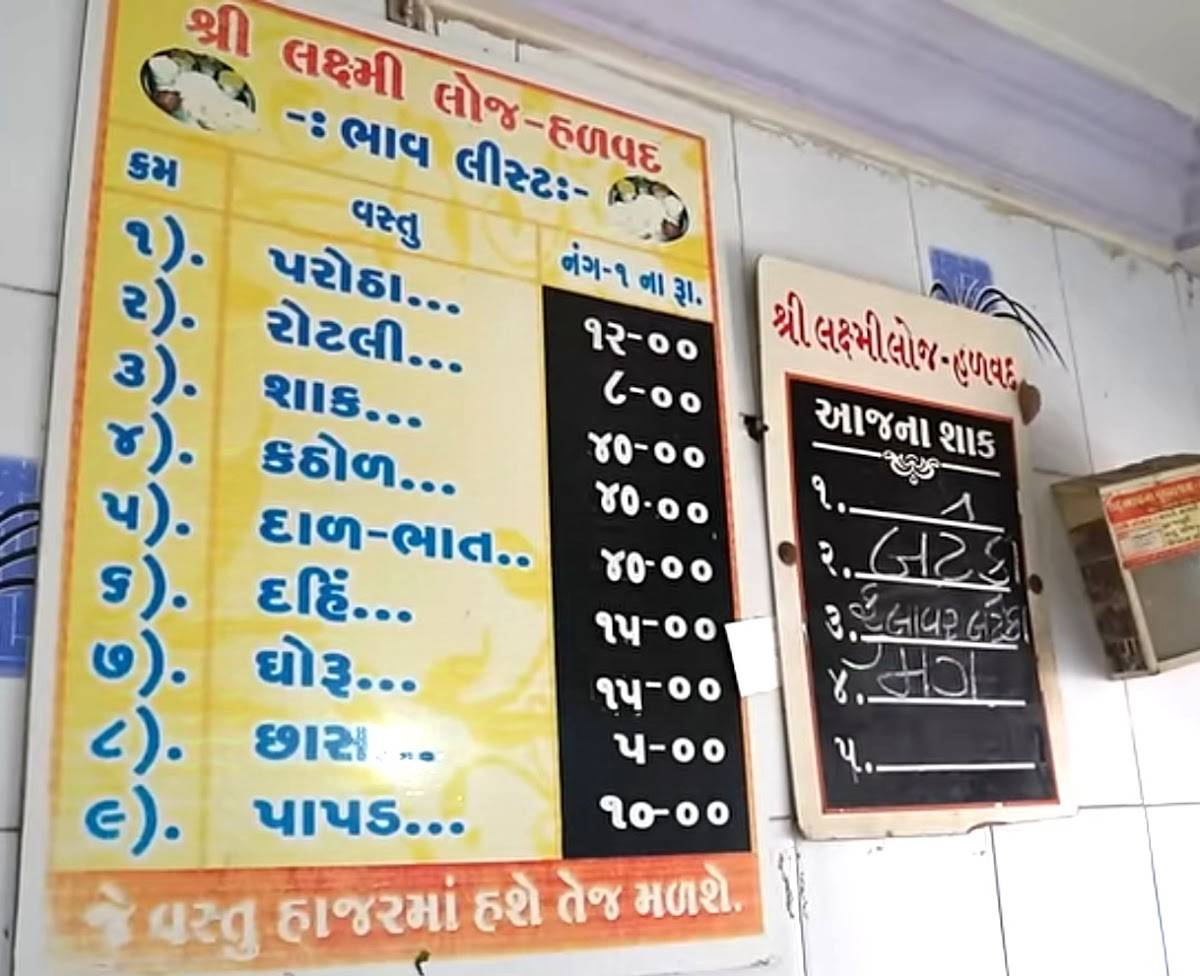 શ્રી લક્ષ્મી લોજ-હળવદ
-: ભાવ લીસ્ટ:-
ક્રમ વસ્તુ નંગ-૧ ના રૂા.
૧). પરોઠા... ૧૨-૦૦
૨). રોટલી... ૮-૦૦
૩). શાક... ૪૦-૦૦
૪). કઠોળ... ૪૦-૦૦
૫). દાળ-ભાત.. ૪૦-૦૦
૬). દહિં... ૧૫-૦૦
૭). ઘોરૂ... ૧૫-૦૦
૮). છાસ... ૫-૦૦
૯). પાપડ... ૧૦-૦૦
જે વસ્તુ હાજરમાં હશે તેજ મળશે.
શ્રી લક્ષ્મી લોજ-હળવદ
આજના શાક
૧.
૨. બટેકા
૩. ફુલાવર બટેકા
૪. મગ
૫.